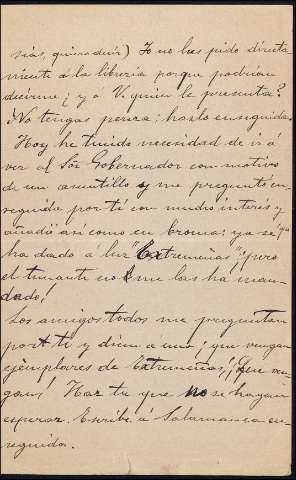 nias, quise decir) Yo no las pido directa
mente á la librería porque podrían
decirme; y á V. quien le presenta?
¡No tengas pereza; hazlo enseguida.
Hoy he tenido necesidad de ir á
ver al Sor Gobernador con motivo
de un asuntillo y me preguntó en-
seguida por ti con mucho interés y
añadió así como en broma: ya sé que
ha dado á luz "Extremeñas"; ¡pero
el tunante no me las ha man-
dado!
Los amigos todos me preguntan
por ti y dicen a una; que vengan
ejemplares de Extremeñas! ¡Que ven
gan! Haz tu que no se hagan
esperar. Escribe á Salamanca en-
seguida.